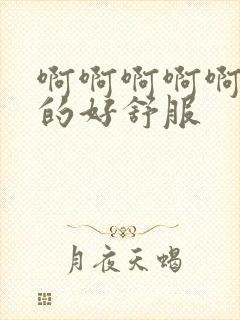 啊啊啊啊啊
的好舒服
月夜天蝎